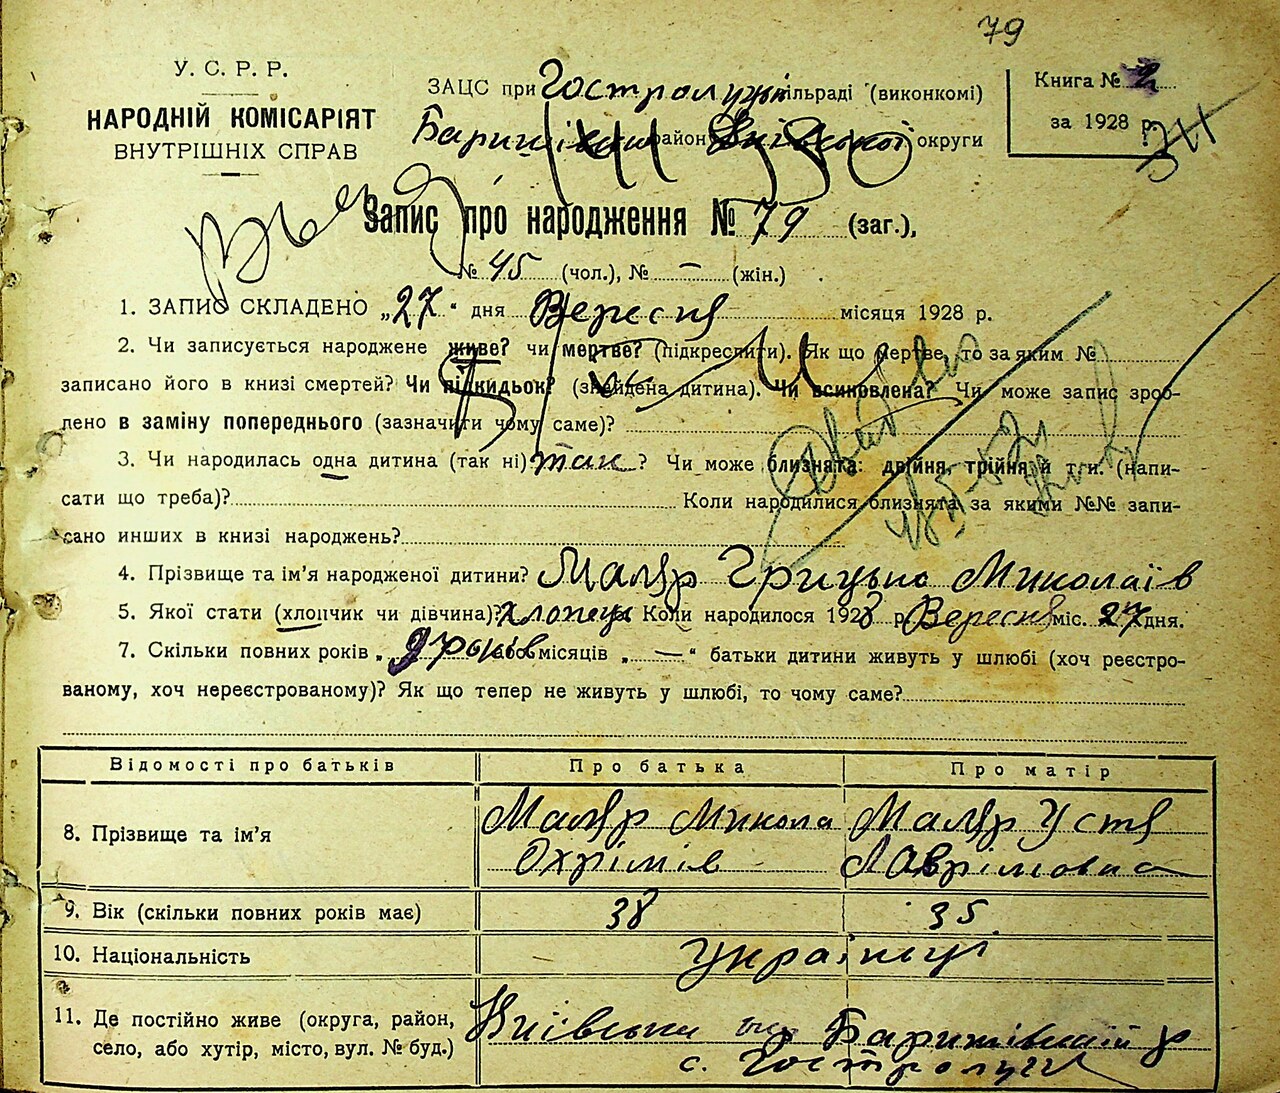 79
У. С. Р. Р.
НАРОДНІЙ КОМІСАРІЯТ
ВНУТРІШНІХ СПРАВ
ЗАЦС при Гостролуцькій сільраді (виконкомі)
район Київської округи
Книга № 2
за 1928 р.
Запис про народження № 79 (заг.),
№ 45 (чол.), № – (жін.)
1. ЗАПИС СКЛАДЕНО „27“ дня Вересня місяця 1928 р.
2. Чи записується народжене живе? чи мертве? (підкреслити). Як що мертве, то за яким №
записано його в книзі смертей? Чи підкидьок? (знайдена дитина). Чи всиновлена? Чи може запис зроб-
лено в заміну попереднього (зазначити чому саме)?
3. Чи народилась одна дитина (так ні) так ? Чи може близнята: двійня, трійня й т. и. (напи-
сати що треба)? Коли народилися близнята за якими №№ запи-
сано инших в книзі народжень?
4. Прізвище та ім’я народженої дитини? Маляр Грицько Миколаїв
5. Якої стати (хлопчик чи дівчина)? хлопець Коли народилося 1928 р. Вересня міс. 27 дня.
7. Скільки повних років „ 9 років або місяців „ — “ батьки дитини живуть у шлюбі (хоч реєстро-
ваному, хоч нереєстрованому)? Як що тепер не живуть у шлюбі, то чому саме?
Відомості про батьків Про батька Про матір
8. Прізвище та ім’я Маляр Микола Охрімів Маляр Устя Лаврімовна
9. Вік (скільки повних років має) 38 35
10. Національність Українці
11. Де постійно живе (округа, район,
село, або хутір, місто, вул. № буд.) Київська Баришівський р
с. Гостролуччя